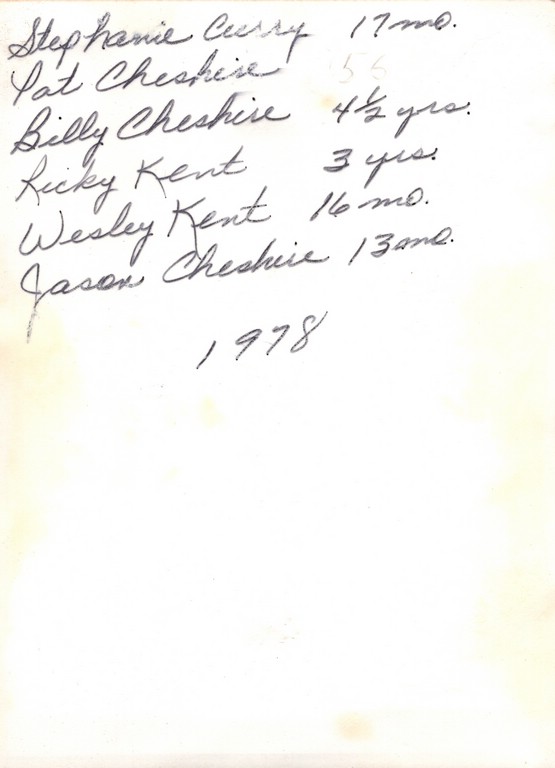 Stephanie Curry 17 mo.
Pat Cheshire 56
Billy Cheshire 4½ yrs.
Ricky Kent 3 yrs.
Wesley Kent 16 mo.
Jason Cheshire 13 mo.
1978